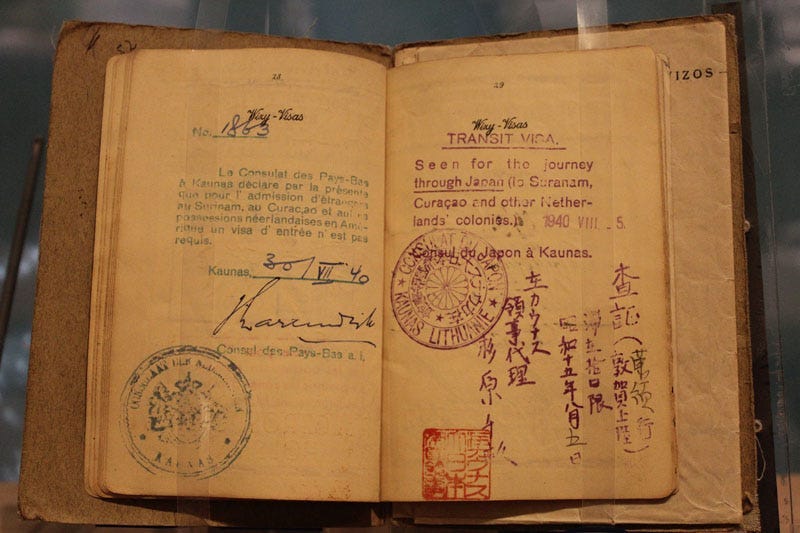 28
Wizy - Visas
No. 1863
Le Consulat des Pays-Bas
à Kaunas déclare par la présente
que pour l' admission d'étrangers
au Surinam, au Curaçao et autres
possessions néerlandaises en Amé-
rique un visa d' entrée n' est pas
requis.
Kaunas, 30/VII 40
Consul des Pays-Bas a. i.
KAUNAS
29
Wizy - Visas
TRANSIT VISA.
Seen for the journey
through Japan (to Suranam,
Curaçao and other Nether-
lands' colonies.) 1940 VIII . 5
Consul du Japon à Kaunas.
CONSULAT DU JAPON
KAUNAS LITHUANIE
査証
(敦賀上陸)
昭和十五年八月五日
在カウナス
領事代理
杉原
VIZOS